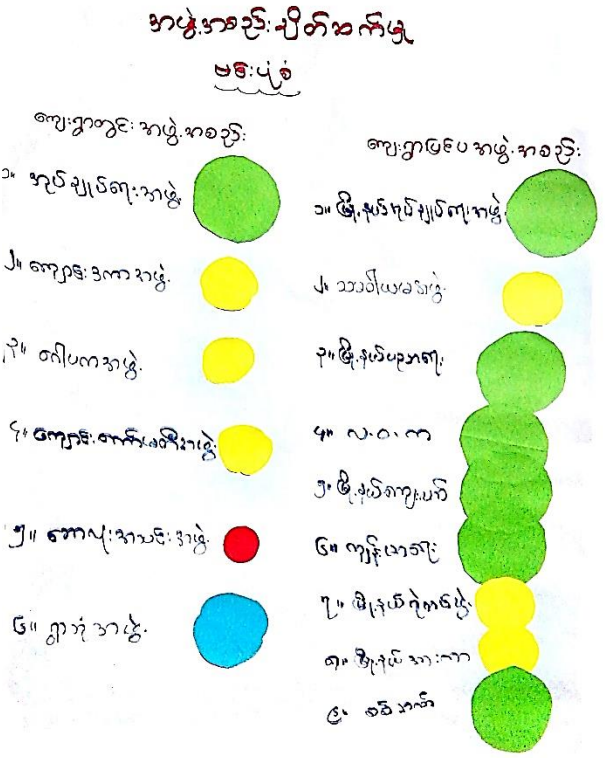 အဖွဲ့အစည်းချိတ်ဆက်မှု
မင်းပုံစံ
ကျေးရွာတွင်းအဖွဲ့အစည်း
၁။ အုပ်ချုပ်ရေးအဖွဲ့
၂။ ကျောင်းဒကာအဖွဲ့
၃။ ဂေါပကအဖွဲ့
၄။ ကျောင်းကော်မတီအဖွဲ့
၅။ ဘောလုံးအသင်းအဖွဲ့
၆။ ရွာဘုံအဖွဲ့
ကျေးရွာပြင်ပအဖွဲ့အစည်း
၁။ မြို့နယ်အုပ်ချုပ်ရေးအဖွဲ့
၂။ သာဝိယမအဖွဲ့
၃။ မြို့နယ်ပညာရေး
၄။ လ.ဝ.က
၅။ မြို့နယ်ကျေးလက်
၆။ ကျန်းမာရေး
၇။ မြို့နယ်
၈။ မြို့နယ်အားကစာ
၉။